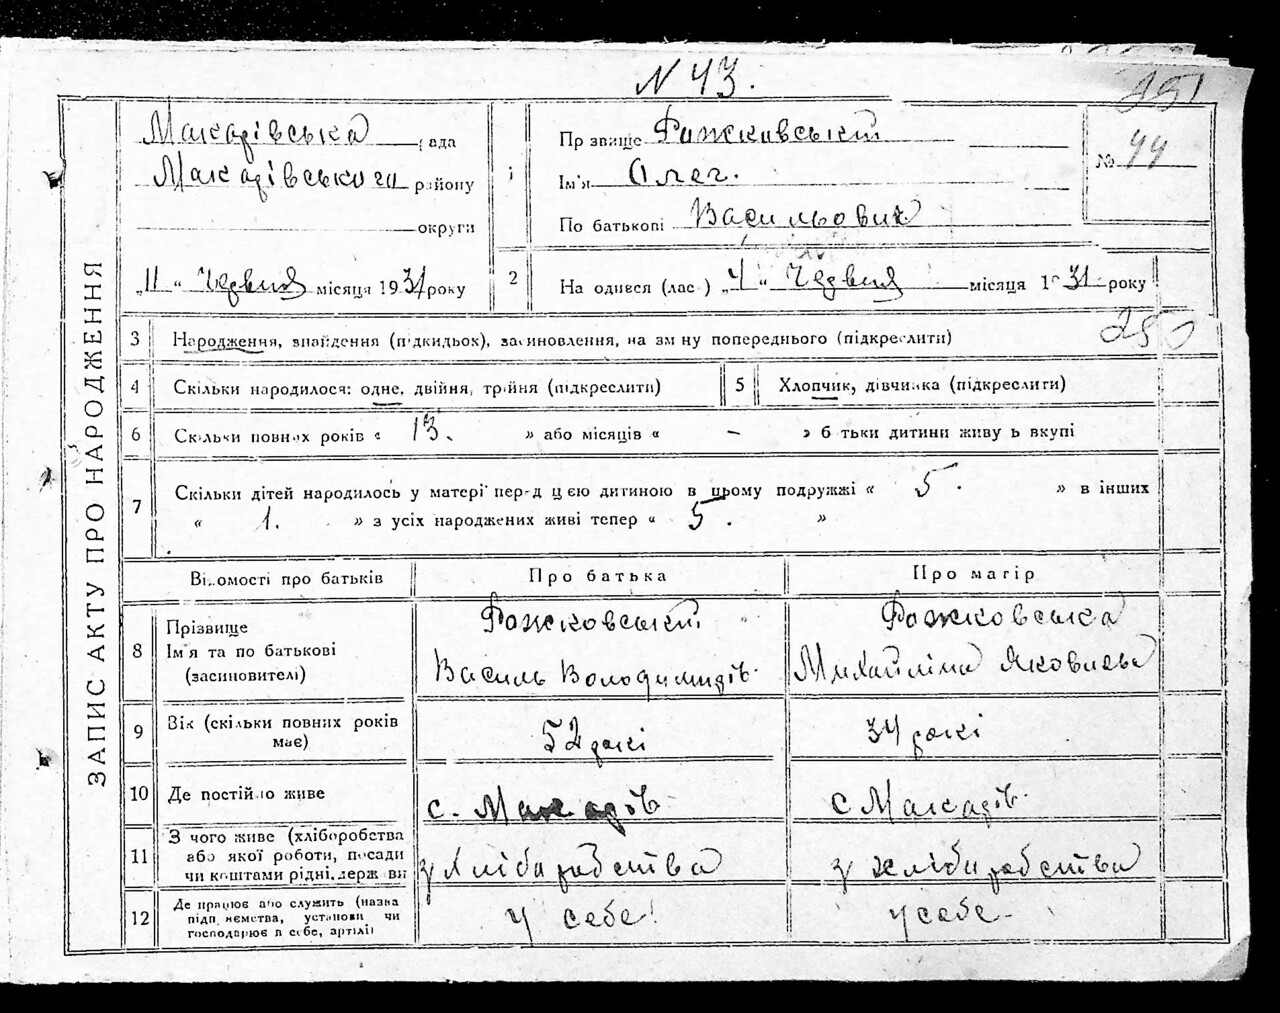 N 43.
251
ЗАПИС АКТУ ПРО НАРОДЖЕННЯ
Макарівська рада
Макарівського району
округи
„11" Червня місяця 1931 року
1 Прізвище Рожковський
Ім'я Олег.
По батькові Васильович
№ 44
2 На одився (лас ) „4" Червня місяця 1931 року
250
3 Народження, знайдення (підкидьок), засиновлення, на зміну попереднього (підкреслити)
4 Скільки народилося: одне, двійня, трійня (підкреслити)
5 Хлопчик, дівчинка (підкреслити)
6 Скільки повних років « 13. » або місяців « – » б тьки дитини живу ь вкупі
7 Скільки дітей народилось у матері перед цією дитиною в цьому подружжі « 5. » в інших
« 1. » з усіх народжених живі тепер « 5. »
Відомості про батьків Про батька Про матір
8 Прізвище Ім'я та по батькові (засиновителі)
Рожковський Василь Володимирів.
Рожковська Михайліна Яковлева
9 Вік (скільки повних років має) 52 рокі 34 рокі
10 Де постійно живе с. Макарів. с Макарів.
11 З чого живе (хліборобства або якої роботи, посади чи коштами рідні, держави
з хліборобства з хліборобства
12 Де працює або служить (назва підприємства, установи чи господарює в себе, артілі)
у себе! у себе.